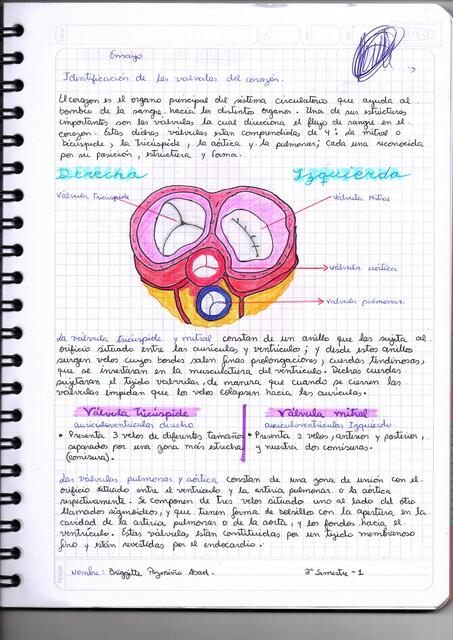 Ensayo
Identificación de las valvulas del corazón.
El corazon es el organo principal del sistema circulatorio que ayuda al
bombeo de la sangre hacia los distintos organos. Una de sus estructuras
importantes son las válvulas la cual direciona el flujo de sangre en el
corazon. Estas dichas válvulas estan comprendidas de 4: La mitral o
bicúspide, la tricúspide, la aórtica y la pulmonar; cada una reconocida
por su posición, estructura y forma.
Derecha
Izquierda
Válvula tricúspide
Válvula Mitral
válvula aórtica
válvula pulmonar
La válvula tricúspide y mitral constan de un anillo que las sujeta al
orificio situado entre las aurículas y ventrículo; y desde estos anillos
surgen velos cuyos bordes salen finas prolongaciones, cuerdas tendinosas,
que se insertaran en la musculatura del ventriculo. Dichas cuerdas
sujetaran el tejido valvular, de manera que cuando se cierren las
válvulas impidan que los velos colapsen hacia las auriculas.
Válvula tricúspide
Válvula mitral
auriculoventriculares derecho
auriculoventriculares Izquierdo
• Presenta 3 velos de diferentes tamaños
separados por una zona más estrecha
(comisura).
• Presenta 2 velos, anterior y posterior,
y muestra dos comisuras.
Las válvulas pulmonar y aórtica constan de una zona de unión con el
orificio situado entre el ventriculo y la arteria pulmonar o la aórtica
respectivamente. Se componen de tres velos situados uno al lado del otro
llamados sigmoideos, y que tienen forma de bolsillos con la apertura en la
cavidad de la arteria pulmonar o de la aorta, y los fondos hacia el
ventriculo. Estas válvulas están constituidas por un tejido membranoso
fino y están revestidas por el endocardio.
Nombre: Briggitte Pazmiño Abad.
2º Semestre - 1